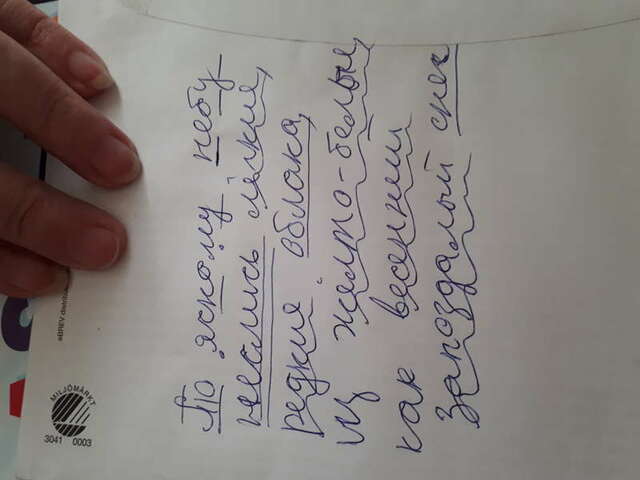 3041 0003
MILJÖMÄRKT
eBREV distribu
По ясному небу
неслись лёгкие,
редкие облака,
из жёлто-белые,
как весенний
запоздалый снег